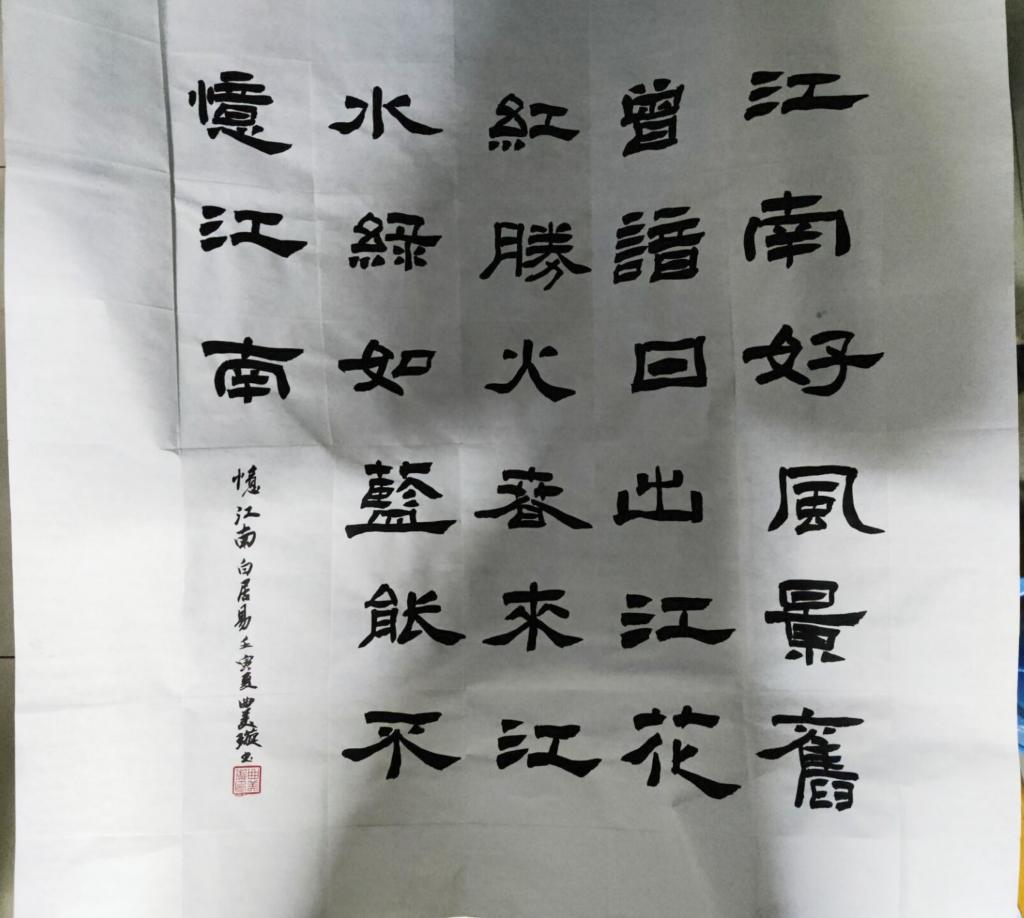 江南好風景舊
曾諳日出江花
紅勝火春來江
水綠如藍能不
憶江南
憶江南白居易壬寅夏曲美璇书